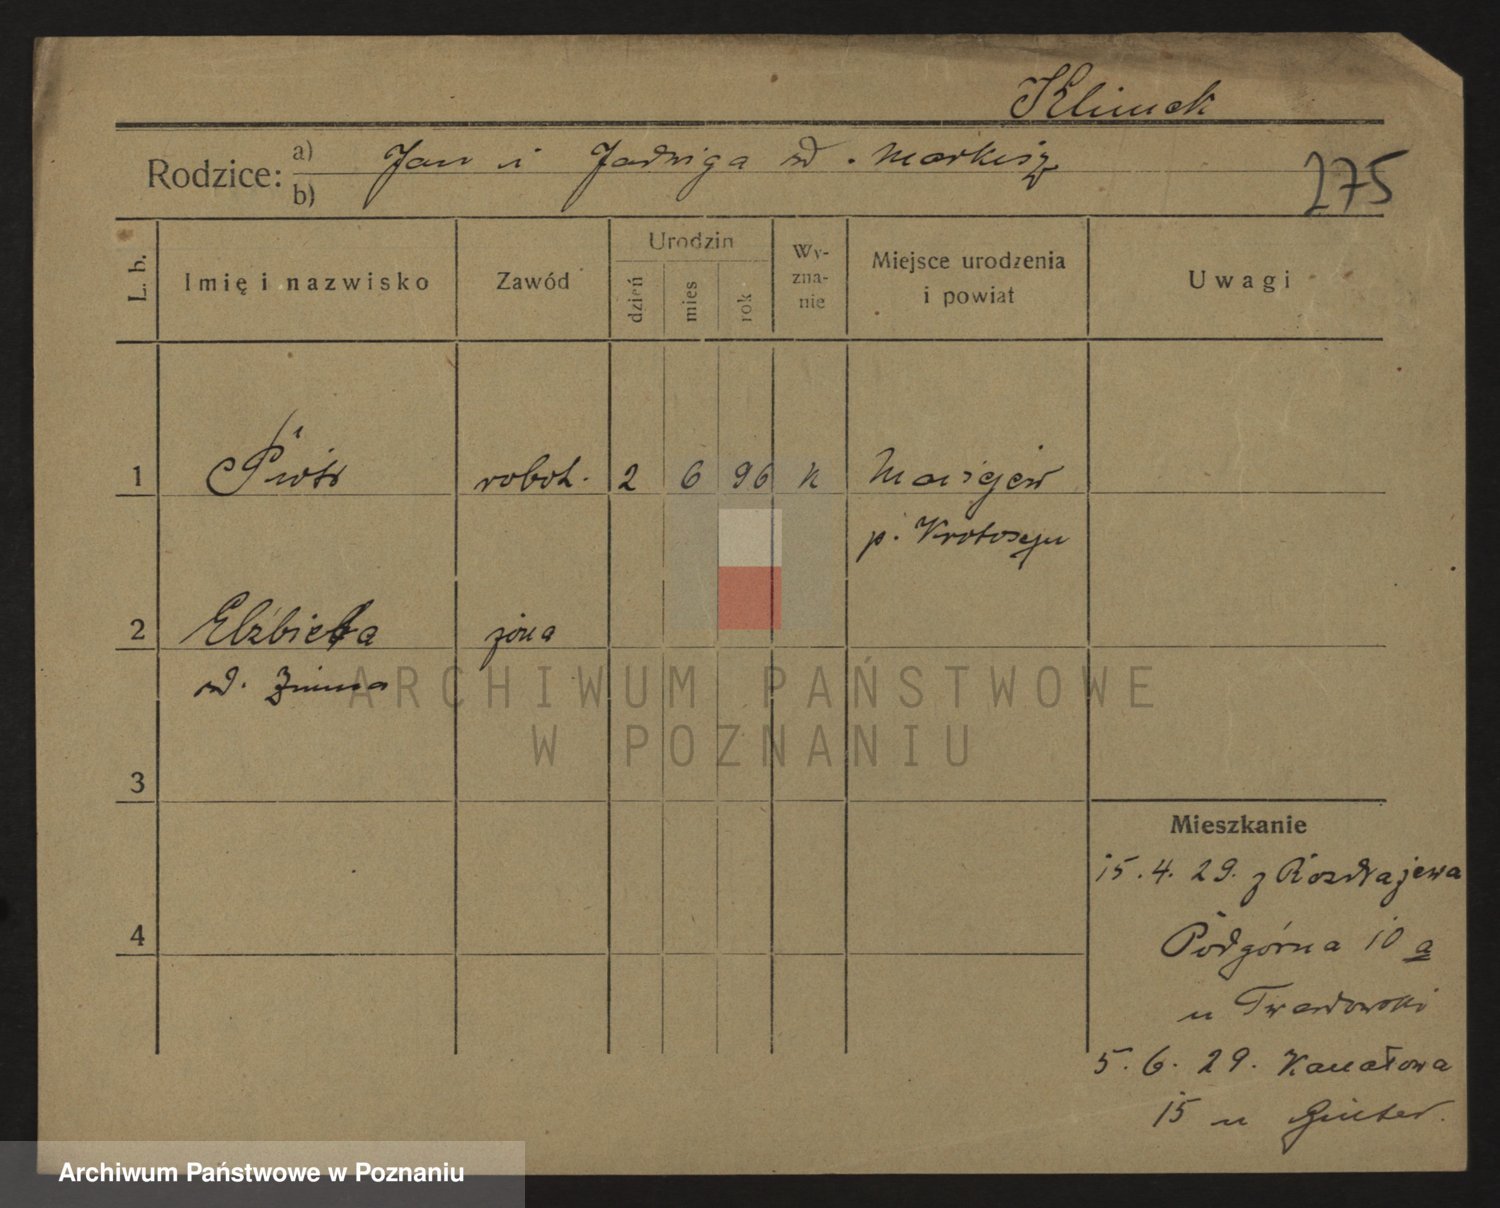 Klimek
Rodzice: a) Jan i Jadwiga rd. Markisz
b)
275
L. b. Imię i nazwisko Zawód Urodzin dzień mies rok Wy-zna-nie Miejsce urodzenia i powiat Uwagi
1 Piotr robot. 2 6 96 k Maciejew
p. Krotoszyn
2 Elżbieta żona
rd. Zimna
ARCHIWUM PAŃSTWOWE
W POZNANIU
3
Mieszkanie
15. 4. 29. z Rozdrażewa
4
Podgórna 10 a
u Twardowski
5. 6. 29. Kanałowa
15 u Ginter.
Archiwum Państwowe w Poznaniu